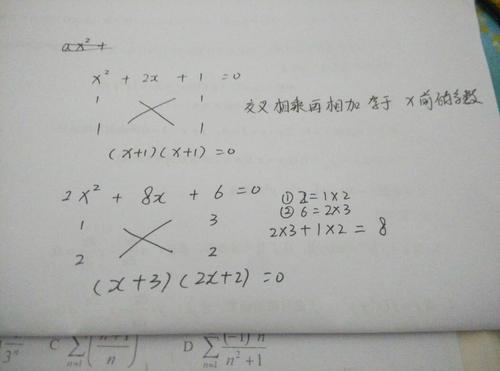 ax² +
x² + 2x + 1 = 0
1 1
1 1
交叉相乘再相加等于 x前的系数
(x+1)(x+1) = 0
2x² + 8x + 6 = 0
1 3
2 2
① 2 = 1×2
② 6 = 2×3
2×3 + 1×2 = 8
(x+3)(2x+2) = 0
3ⁿ C ∑ n=1 n D ∑ n=1 (-1)ⁿ n / n² + 1